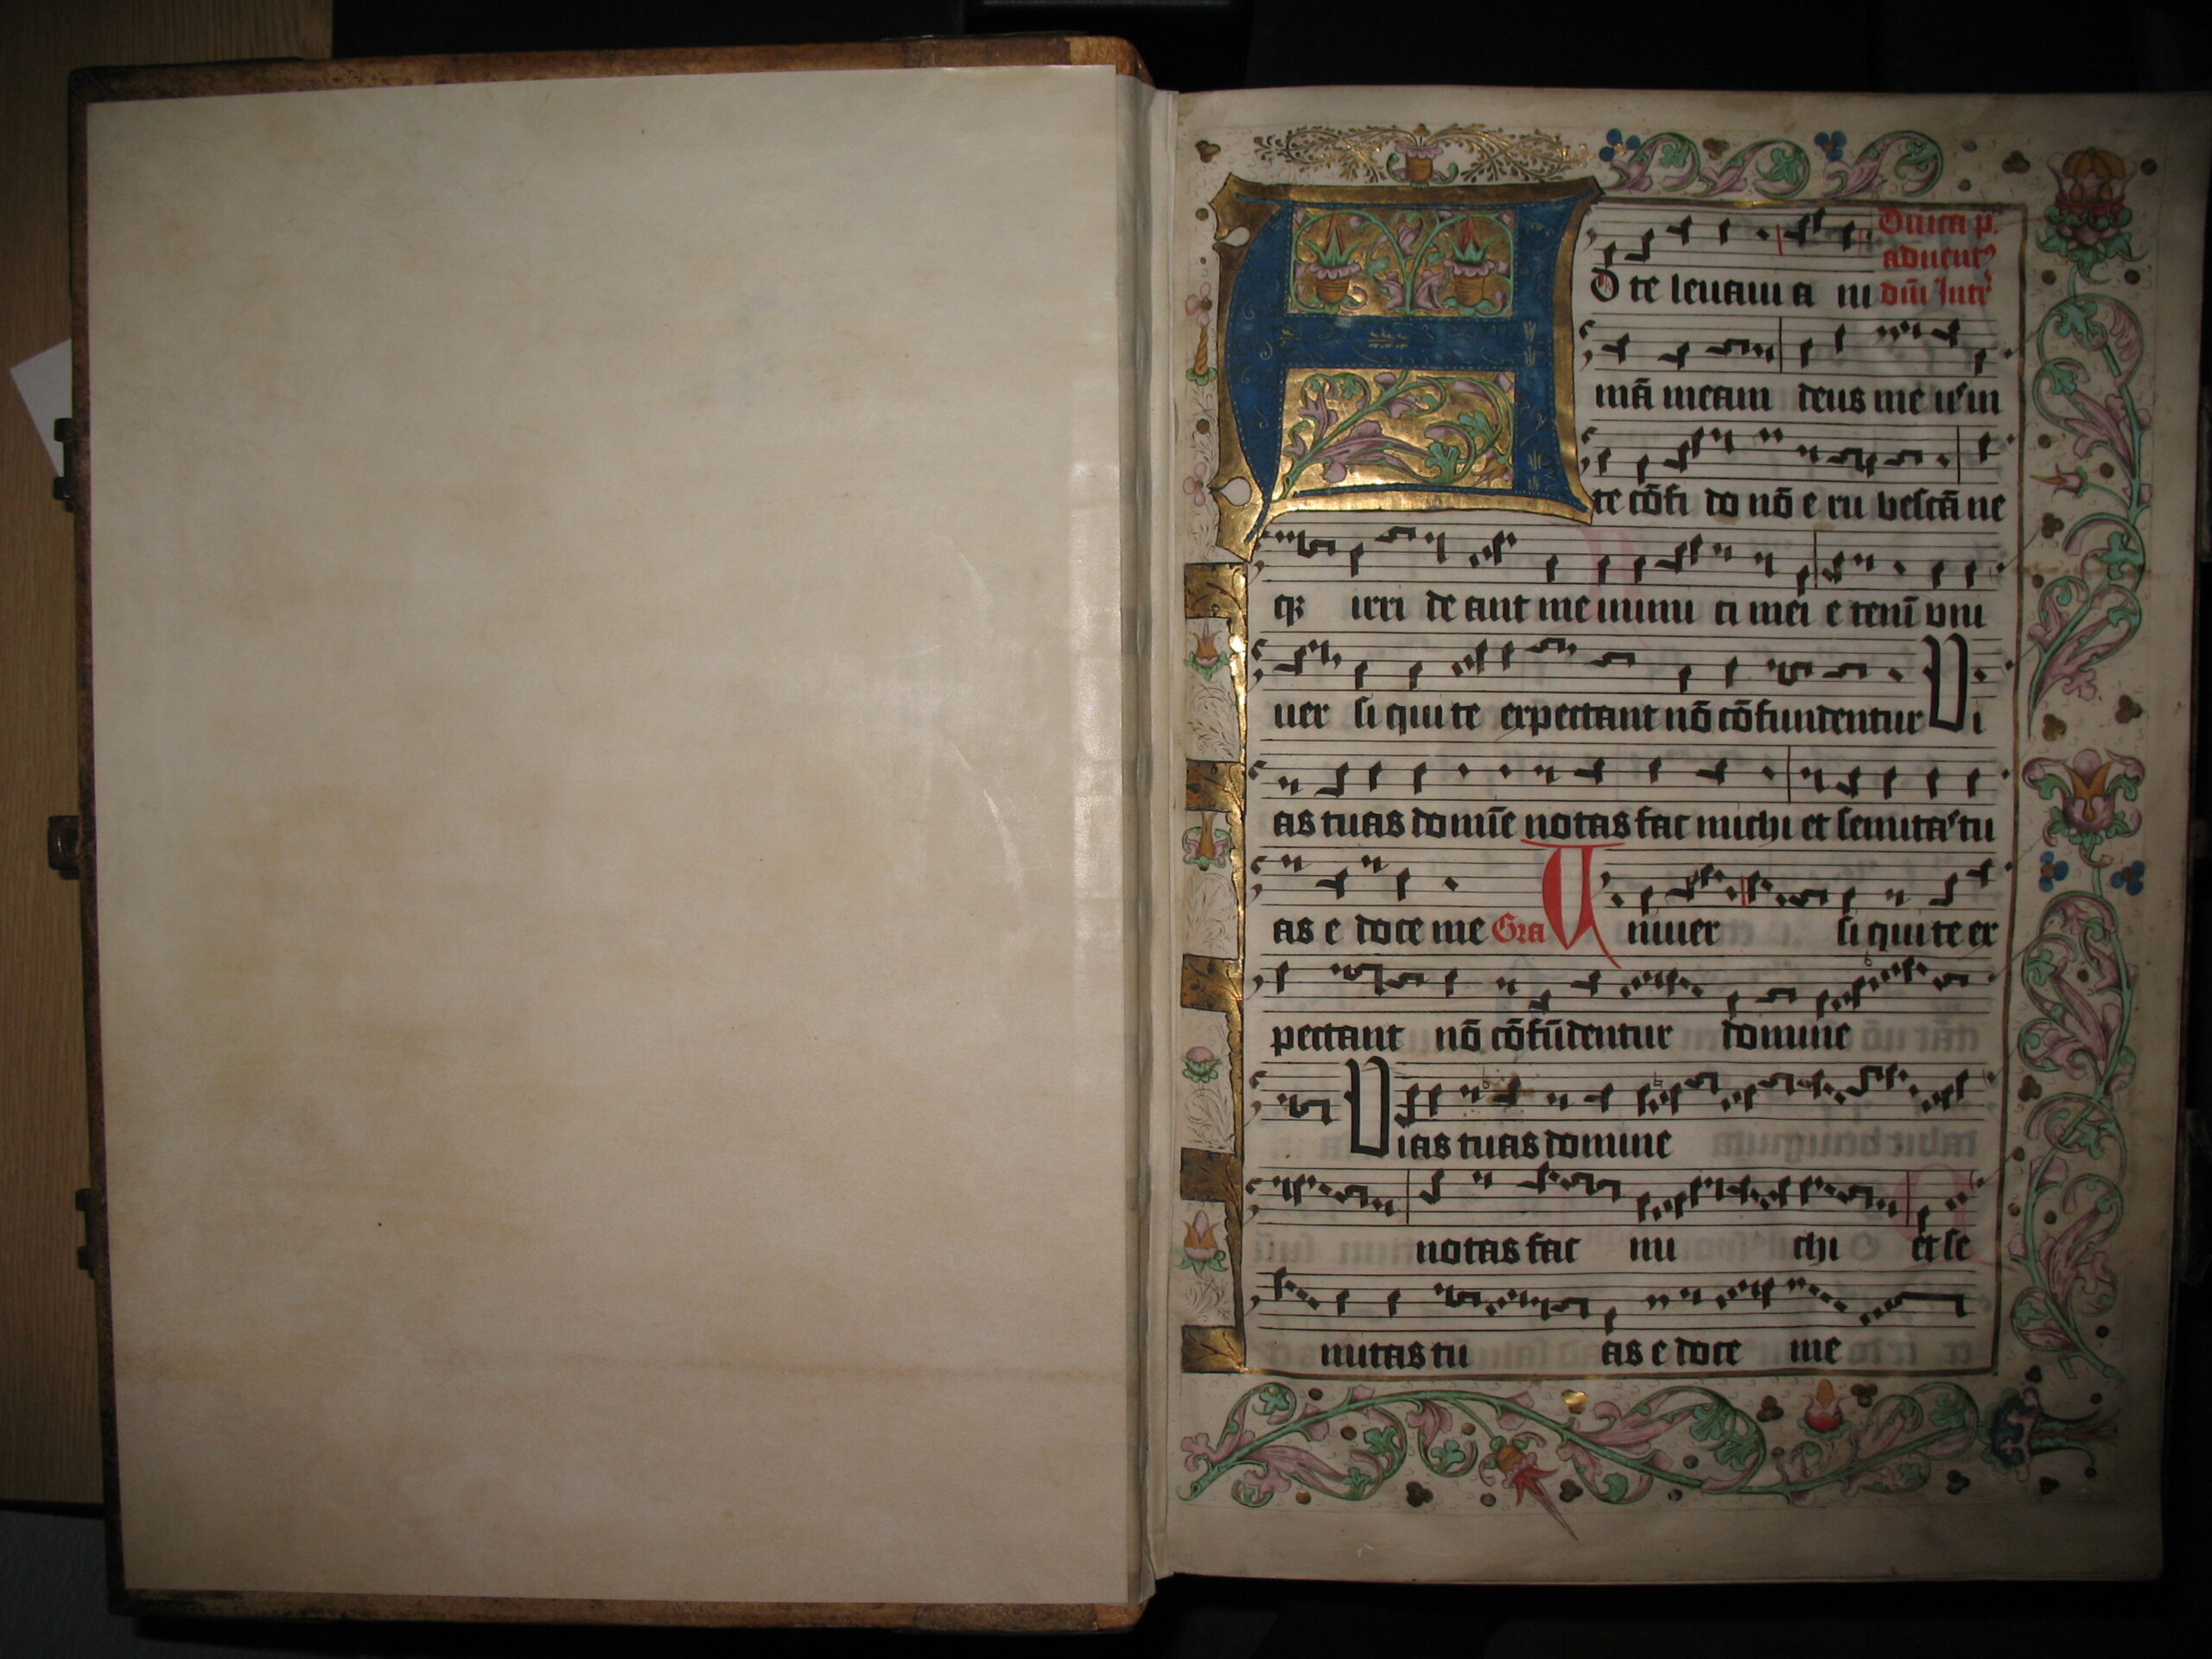 AD te leuaui a ni Dnica p.
aduent⁹
dñi Intr̄
mā meam deus me us in
te cōfi do nō e ru bescā ne
qȝ irri de ant me inimi ci mei e tenī uni
uer si qui te expectant nō cōfundentur Vi
as tuas domīe notas fac michi et semitas tu
as e doce me Gra Vniuer si qui te ex
pectant nō cōfūdentur domine
Vias tuas domine
notas fac mi chi et se
mitas tu as e doce me